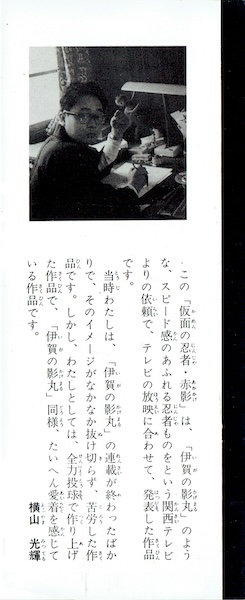 この「仮面の忍者・赤影」は、「伊賀の影丸」のよう
な、スピード感のあふれる忍者ものをという関西テレビ
よりの依頼で、テレビの放映に合わせて、発表した作品
です。
当時わたしは、「伊賀の影丸」の連載が終わったばか
りで、そのイメージがなかなか抜け切らず、苦労した作
品です。しかし、わたしとしては、全力投球で作り上げ
た作品で、「伊賀の影丸」同様、たいへん愛着を感じて
いる作品です。
横山光輝